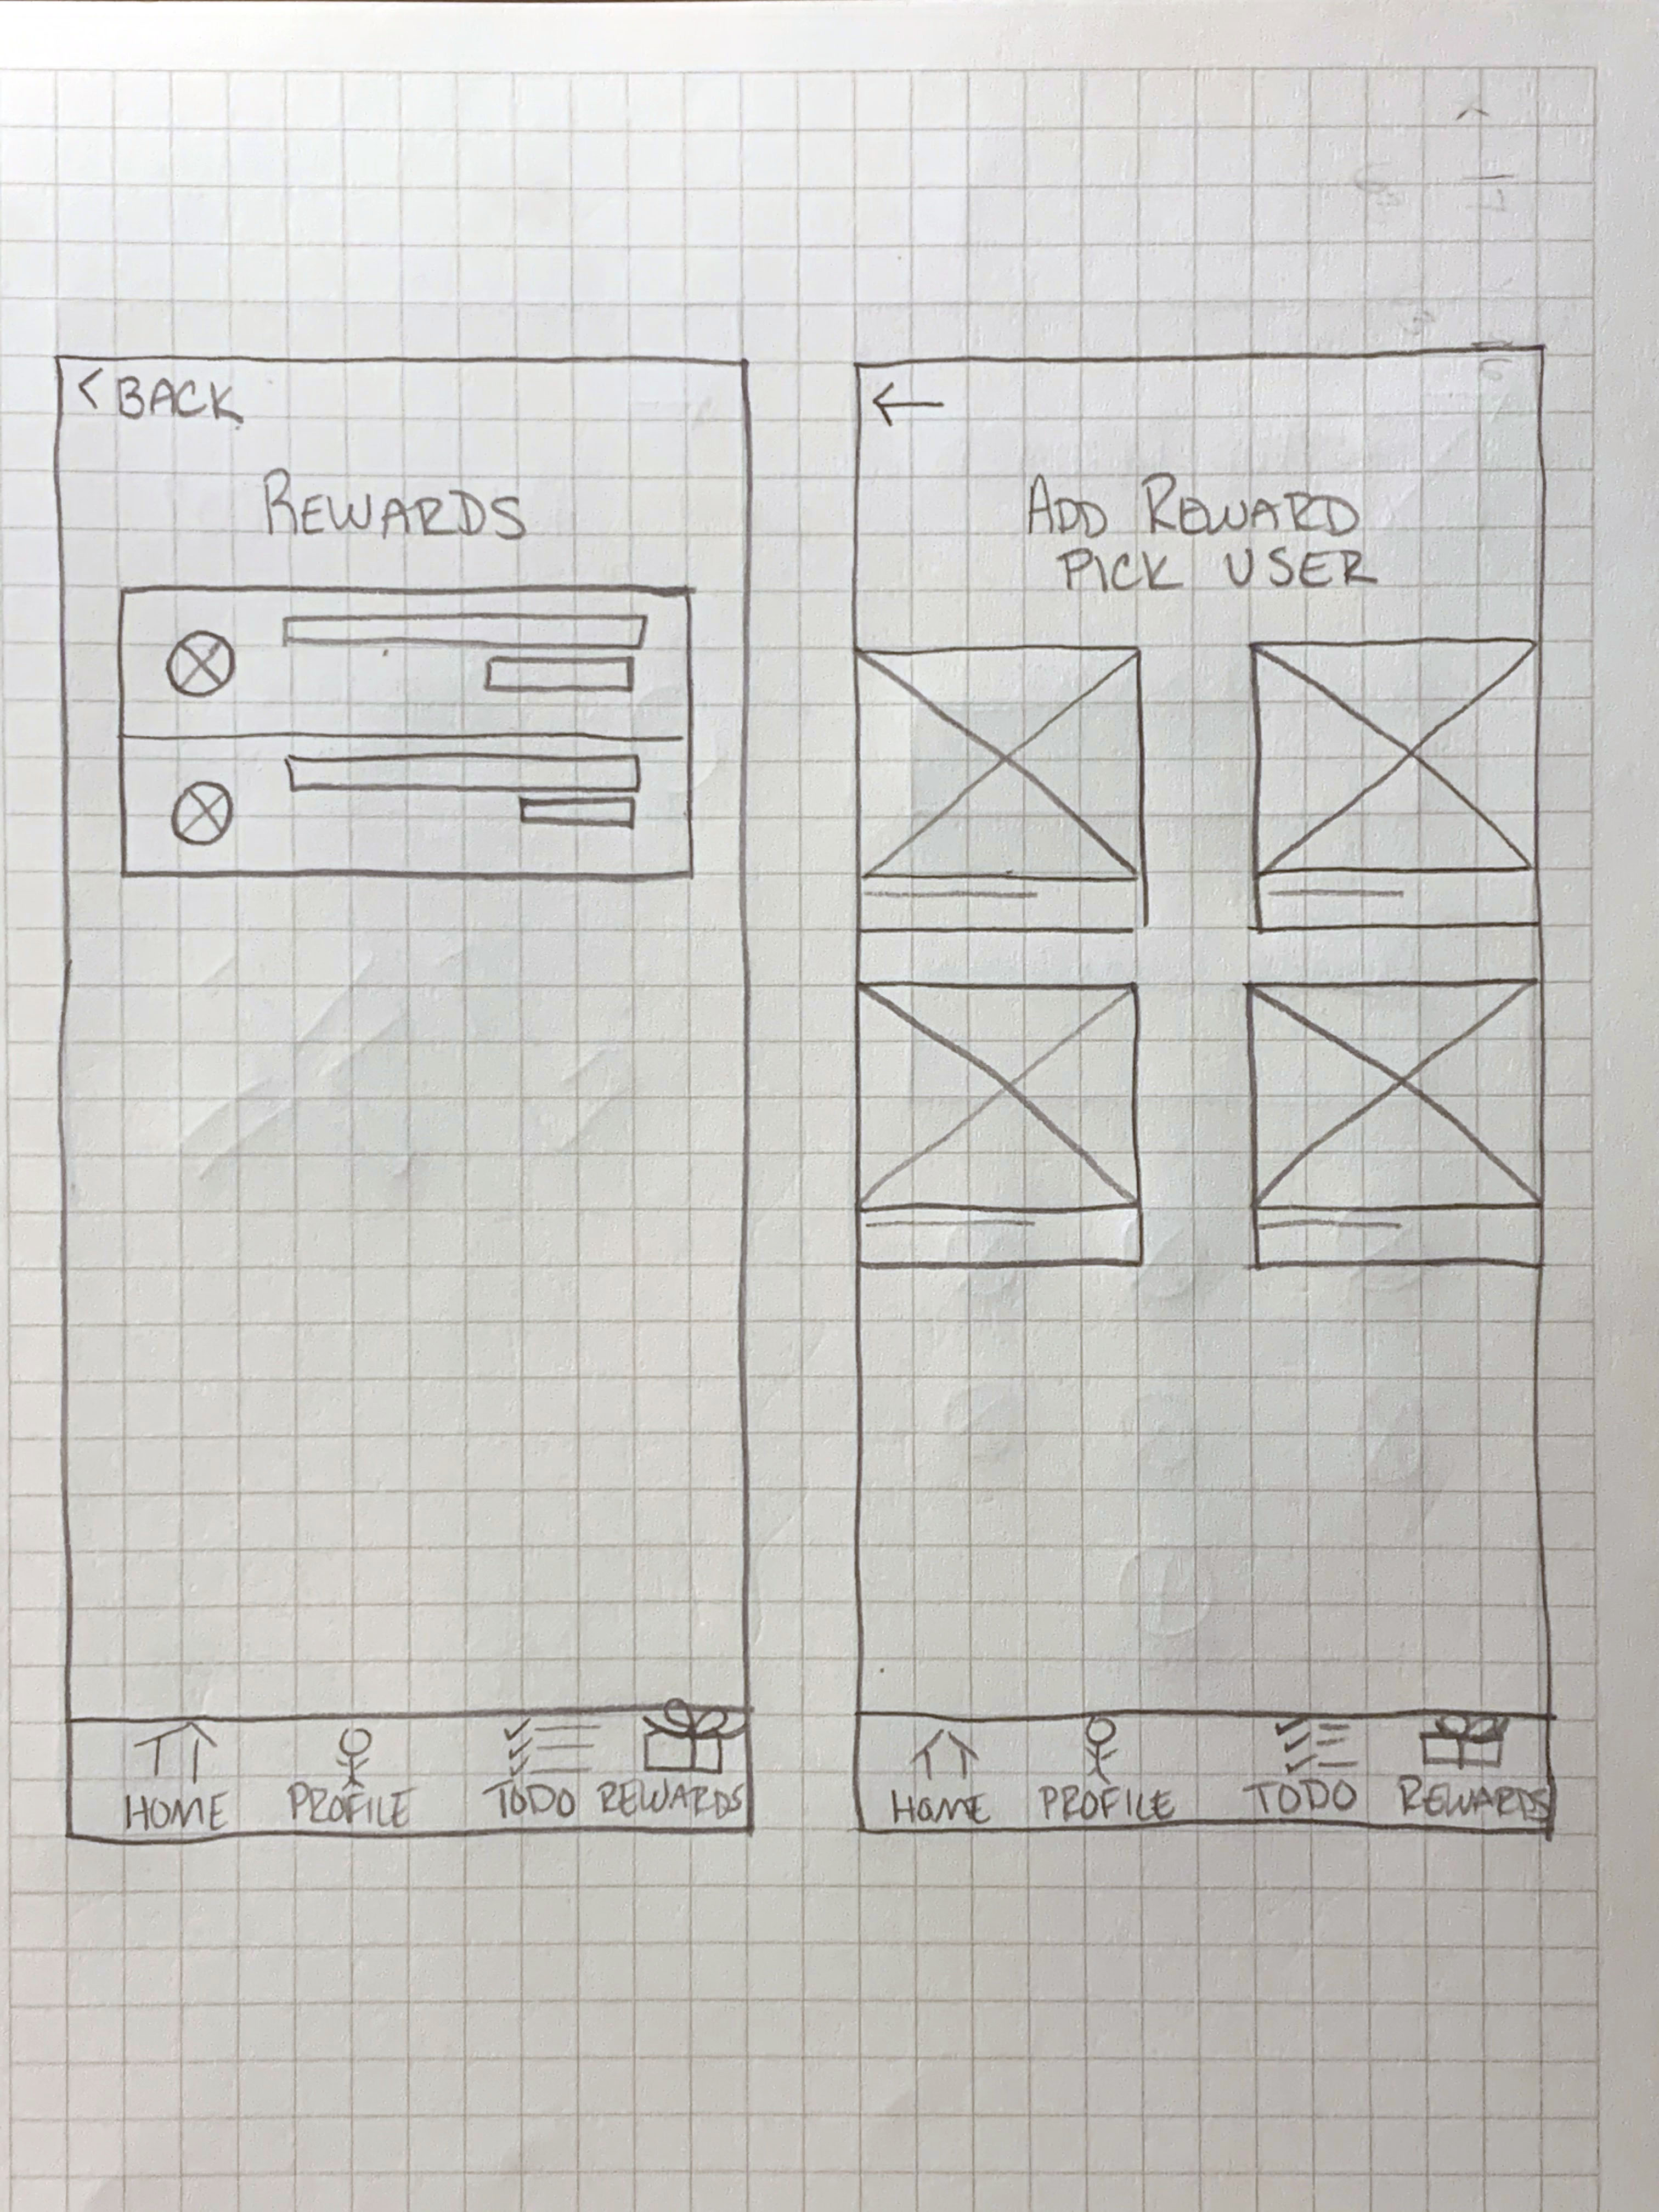 < BACK
REWARDS
HOME PROFILE TODO REWARDS
←
ADD REWARD
PICK USER
HOME PROFILE TODO REWARDS